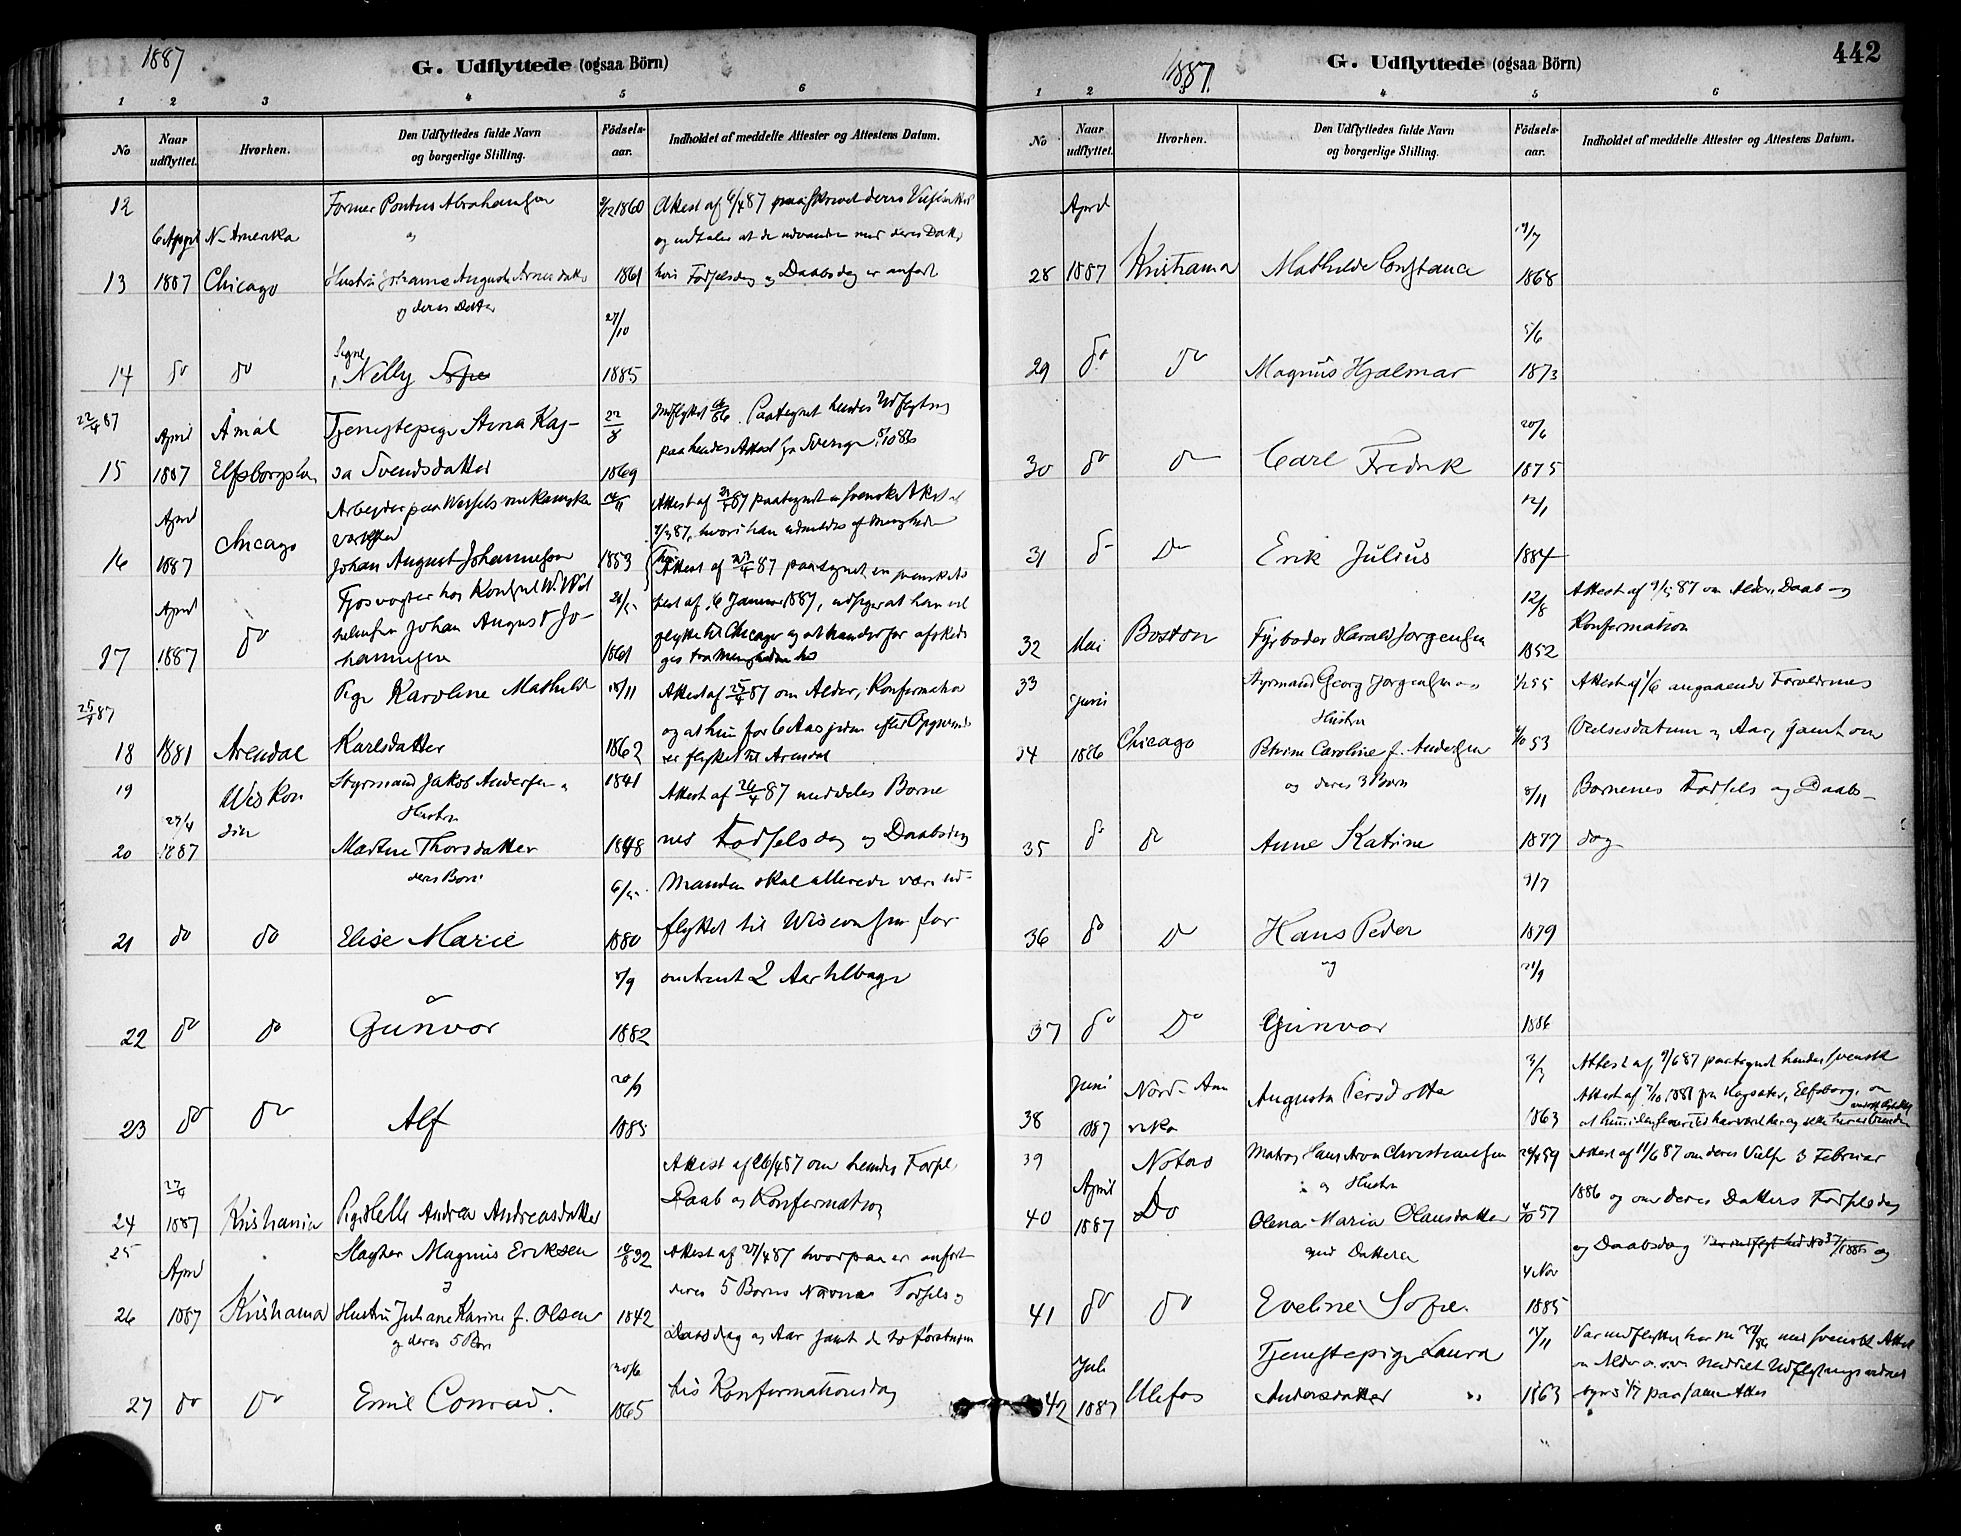 1887
G. Udflyttede (ogsaa Börn)
1 2 3 4 5 6
No
Naar udflyttet.
Hvorhen.
Den Udflyttedes fulde Navn og borgerlige Stilling.
Födsels-aar.
Indholdet af meddelte Attester og Attestens Datum.
12 Former Pontus Abrahamsen 1860 Attest af 6/4 87
og
6 April N-Amerika og udtaler at de udvandre med deres Datter
13 1887 Chicago Hustru Johanne Augusta Arnesdatter 1861 hvis Fødselsdag og Daabsdag er anført
og deres Datter
27/10
Signe
14 do do Nelly Sofie 1885
22/4 87 April Åmål Tjenestepige Stina Kaj- 22/8 Indflyttet 86. Paategnet hendes Udflytning
paa hendes Attest fra Sverige
15 1887 Elfsborgslän sa Svendsdatter 1869
April Arbejder paa mekaniske Attest af 87 paategnet svensk Attest
Chicago Værksted 87, hvori han udmeldes af Menigheden
16 1887 Johan August Johannesen 1853 Attest af 23/4 87 paategnet en svensk At-
April Fjøsrøgter hos Konsul test af 6 Januar 1887, udsiger at han vil
do Johan August Jo- flytte til Chicago og at han derfor afskedi
17 1887 hannesen 1861 ges fra Menigheden
25/4 87 Pige Karoline Mathilde 18/11 Attest af 25/4 87 om Alder, Konfirmation
og at hun for 6 Aar siden
18 1881 Arendal Karlsdatter 1862 er flyttet til Arendal
19 Wiskon Styrmand Jakob Andersen 1841 Attest af 26/4 87 meddeles Børne
27/4 sin Hustru
20 1887 Martine Thorsdatter 1848 nes Fødselsdag og Daabsdag
deres Børn 6/5 Manden skal allerede være ud-
21 do do Elise Marie 1880 flyttet til Wisconsin for
7/9 omtrent 2 Aar tilbage
22 do do Gunvor 1882
20/9
23 do do Alf 1885
Attest af 26/4 87 om hendes Fødsel,
27/4 Daab og Konfirmation
24 1887 Kristiania Pige Helle Andrea Andreasdatter
25 Slagter Magnus Eriksen 32 Attest af 27/4 87 hvorpaa er anført
April og deres 5 Børns Navne, Fødsels og
26 1887 Kristiania Hustru Juliane Karine f. Olsen 1842 Daabsdag og Aar samt de to førstnævn
og deres 5 Børn
20/6 tes Konfirmationsdag
27 do do Emil Conrad 1865
1887.
G. Udflyttede (ogsaa Börn)
442
1 2 3 4 5 6
No
Naar udflyttet.
Hvorhen.
Den Udflyttedes fulde Navn og borgerlige Stilling.
Födsels-aar.
Indholdet af meddelte Attester og Attestens Datum.
April
19/7
28 1887 Kristiania Mathilde Constance 1868
5/6
29 do do Magnus Hjalmar 1873
20/6
30 do do Carl Fredrik 1875
12/1
31 do Do Erik Julius 1884
12/8 Attest af 87 om Alder, Daab og
Konfirmation
32 Mai Boston Fyrbøder Harald Jørgensen 1852
33 Juni Styrmand Georg Jørgensen og 55 Attest af 1/6 angaaende Forældrenes
Hustru
34 1886 Chicago Petrine Caroline f. Andersen 53 Vielsesdatum og Aar, samt om
og deres 3 Børn 8/11 Børnenes Fødsels og Daabs-
35 do do Anne Katrine 1877 dag
9/7
36 do Do Hans Peder 1879
og 21/9
37 do Do Gunvor 1886
3/3 Attest af 9/6 87 paategnet hendes svenske
Juni Nord-Ame Augusta Persdotter Attest af 7/10 1881 fra Elfsborg, om
38 1887 rika 1863
39 Notterø Matros Hans Aron Christiansen 59 Attest af 11/6 87 om deres Vielse 3 Februar
April og Hustru
40 1887 Do Olena Maria Olausdatter 57 1886 og om deres Datters Fødselsdag
med Datteren 4 Nov og Daabsdag
41 do do Eveline Sofie. 1885
Tjenestepige Laura 14/11 Var indflyttet med svensk Attest
Juli
42 1887 Ulefos Andersdatter 1863